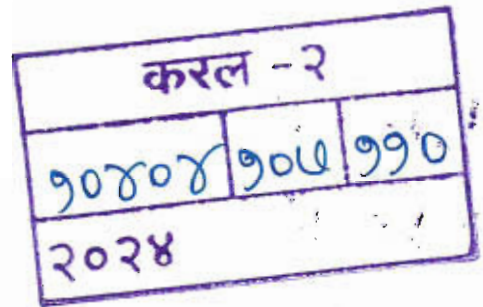 करल - २
१०४०४ १०५ ११०
२०२४